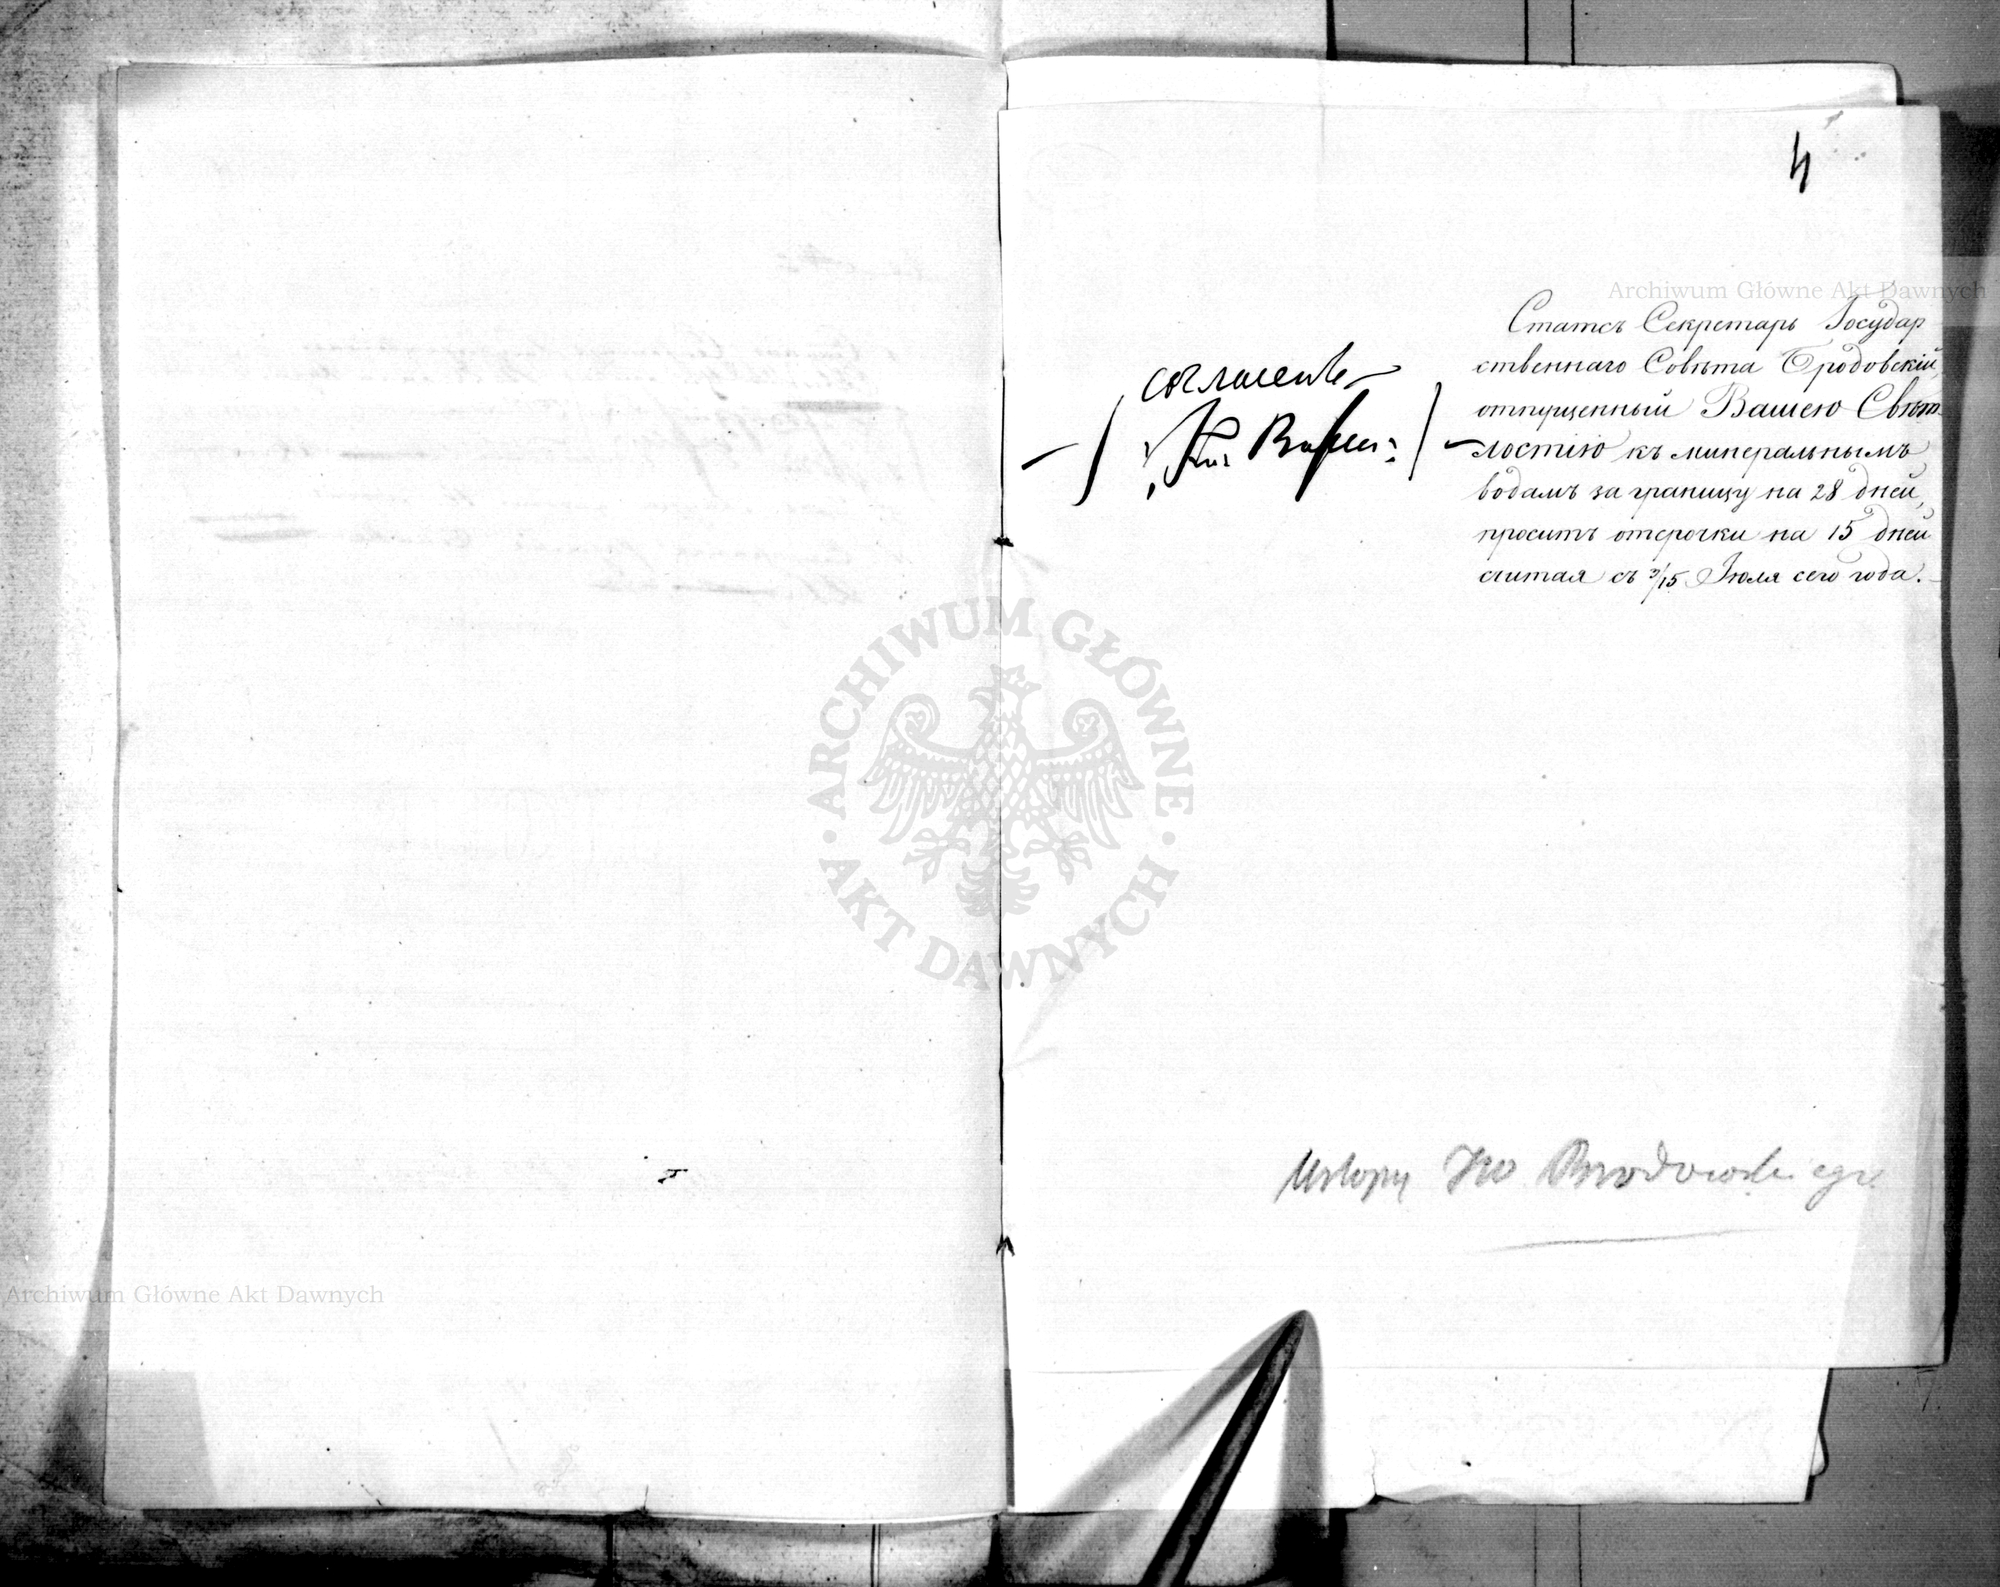 4
Archiwum Główne Akt Dawnych
Статсъ Секретарь Государ
ственнаго Совѣта Бродовскій,
отпущенный Вашею Свѣт-
лостію къ минеральнымъ
водамъ за границу на 28 дней,
проситъ отсрочки на 15 дней
считая съ 3/15 Іюля сего года.
согласенъ
ARCHIWUM GŁÓWNE
AKT DAWNYCH
Urlopy Brodowskiego
Archiwum Główne Akt Dawnych